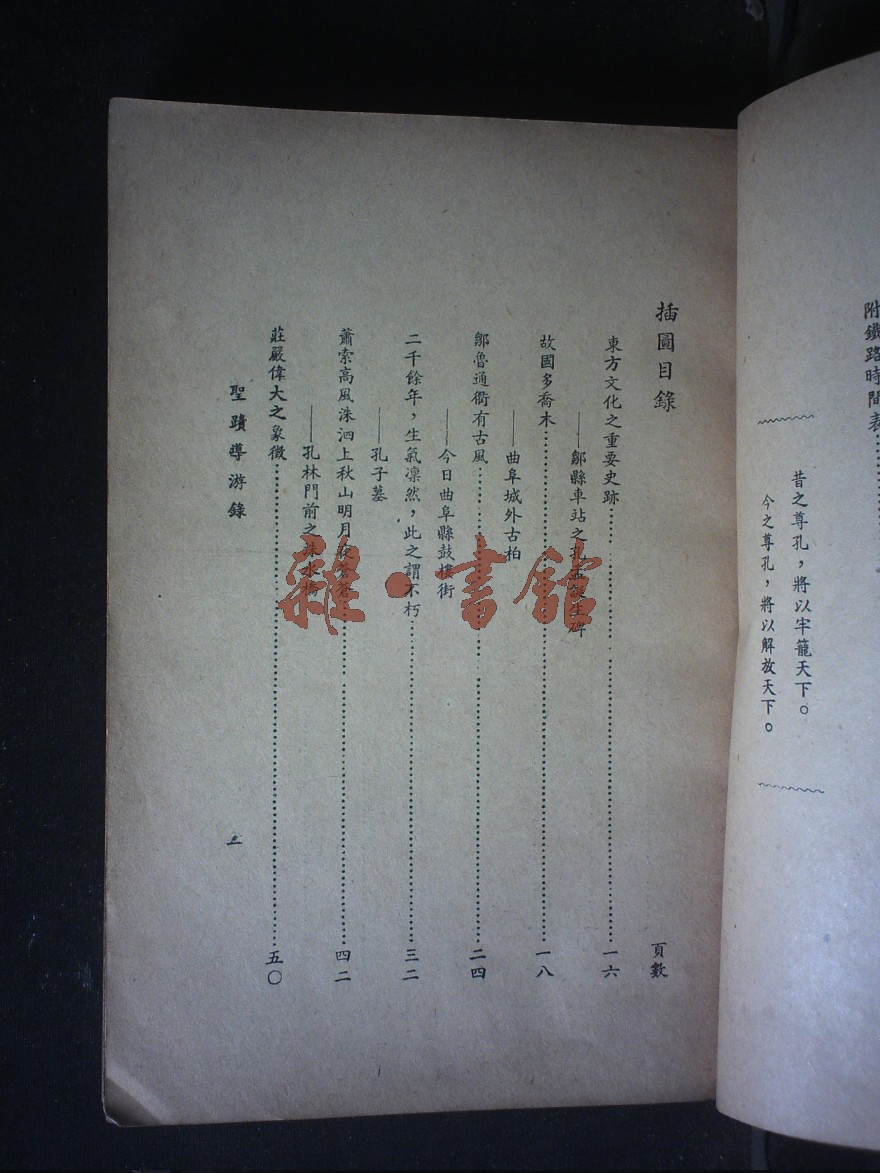 附鐵路時間表
昔之尊孔，將以牢籠天下。
今之尊孔，將以解放天下。
插圖目錄 頁數
東方文化之重要史跡 一六
——鄒縣車站之孔孟誕生碑
故國多喬木 一八
——曲阜城外古柏
鄒魯通衢有古風 二四
——今日曲阜縣鼓樓街
二千餘年，生氣凛然，此之謂不朽 三二
——孔子墓
蕭索高風洙泗上秋山明月夜蒼蒼 四二
——孔林門前之洙水橋
莊嚴偉大之象徵 五〇
聖蹟導游錄
雜·書館